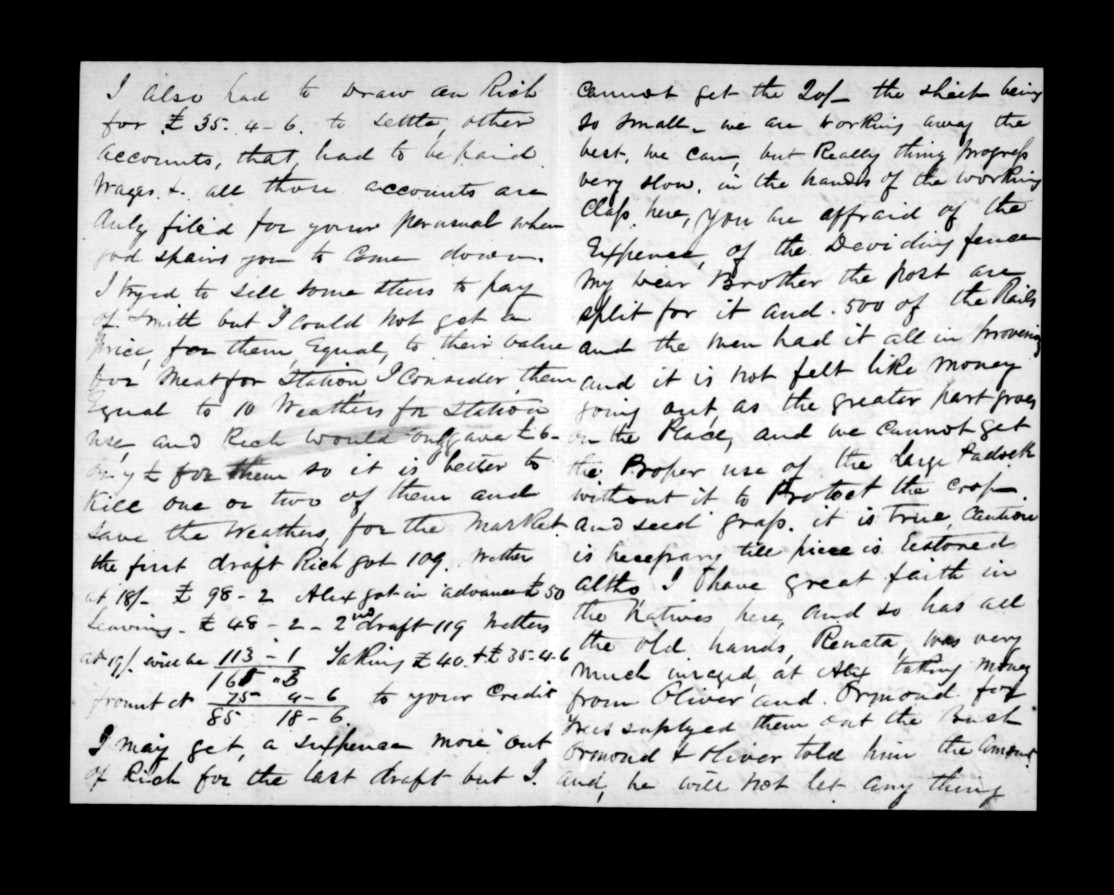 I also had to draw on Rich
for £35. 4-6. to settle other
accounts, that, had to be paid.
Wages &. all those accounts are
duly filed for your perusual when
god spairs you to Come down.
I tryed, to sell some steers to pay
of Smith but I Could not get a
Price, for them, Equal, to their value
for Meat for Station, I Consider, them
Equal to 10 Weathers for Station
use, and Rich would only gave £6-
for them so it is better to
Kill one or two of them and
save the Weathers, for the Market.
the first draft Rich got 109 Wether
at 18/- £98-2 Alex got in advance £50
Leaving - £48-2- 2nd draft 119 Wethers
at 19/. will be 113-1 Taking £40. + £35-4-6
from it
75 4-6 to your Credit
85 18-6
I may get, a sixpence more out
of Rich for the last draft but I.
Cannot get the 20/- the sheep being
so small. we are working away the
best, we can, but Really thing progress
very slow. in the hands of the working
Class here, you are affraid of the
Expence, of the Deviding fence
My Dear Brother the Post are
split for it and. 500 of the Rails
and the men had it all in
and it is not felt like money
going out, as the greater part goes
on the Place, and we Cannot get
the Proper use of the Large Padock
without it to Protect the Crop.
and seed grass. it is true, Caution
is necessary till piece is Restored
altho, I have great faith in
the Natives here, and so has all
the old hands, Renata, was very
much inraged, at Alex taking money
from Oliver and. Ormond for
was suplyed them out the bush
Ormond & Oliver told him the amount
and, he will not let any thing